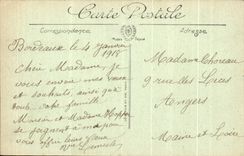 Carte Postale
Correspondance
Adresse
Bordeaux le 4 janvier
1918
Chère Madame, je
vous envoie mes vœux
et souhaits, ainsi que
toute famille
Monsieur et Madame
se joignent à moi pour
vous offrir leurs vœux
Madame Choreau
9 rue des Lices
Angers
Maine et Loire